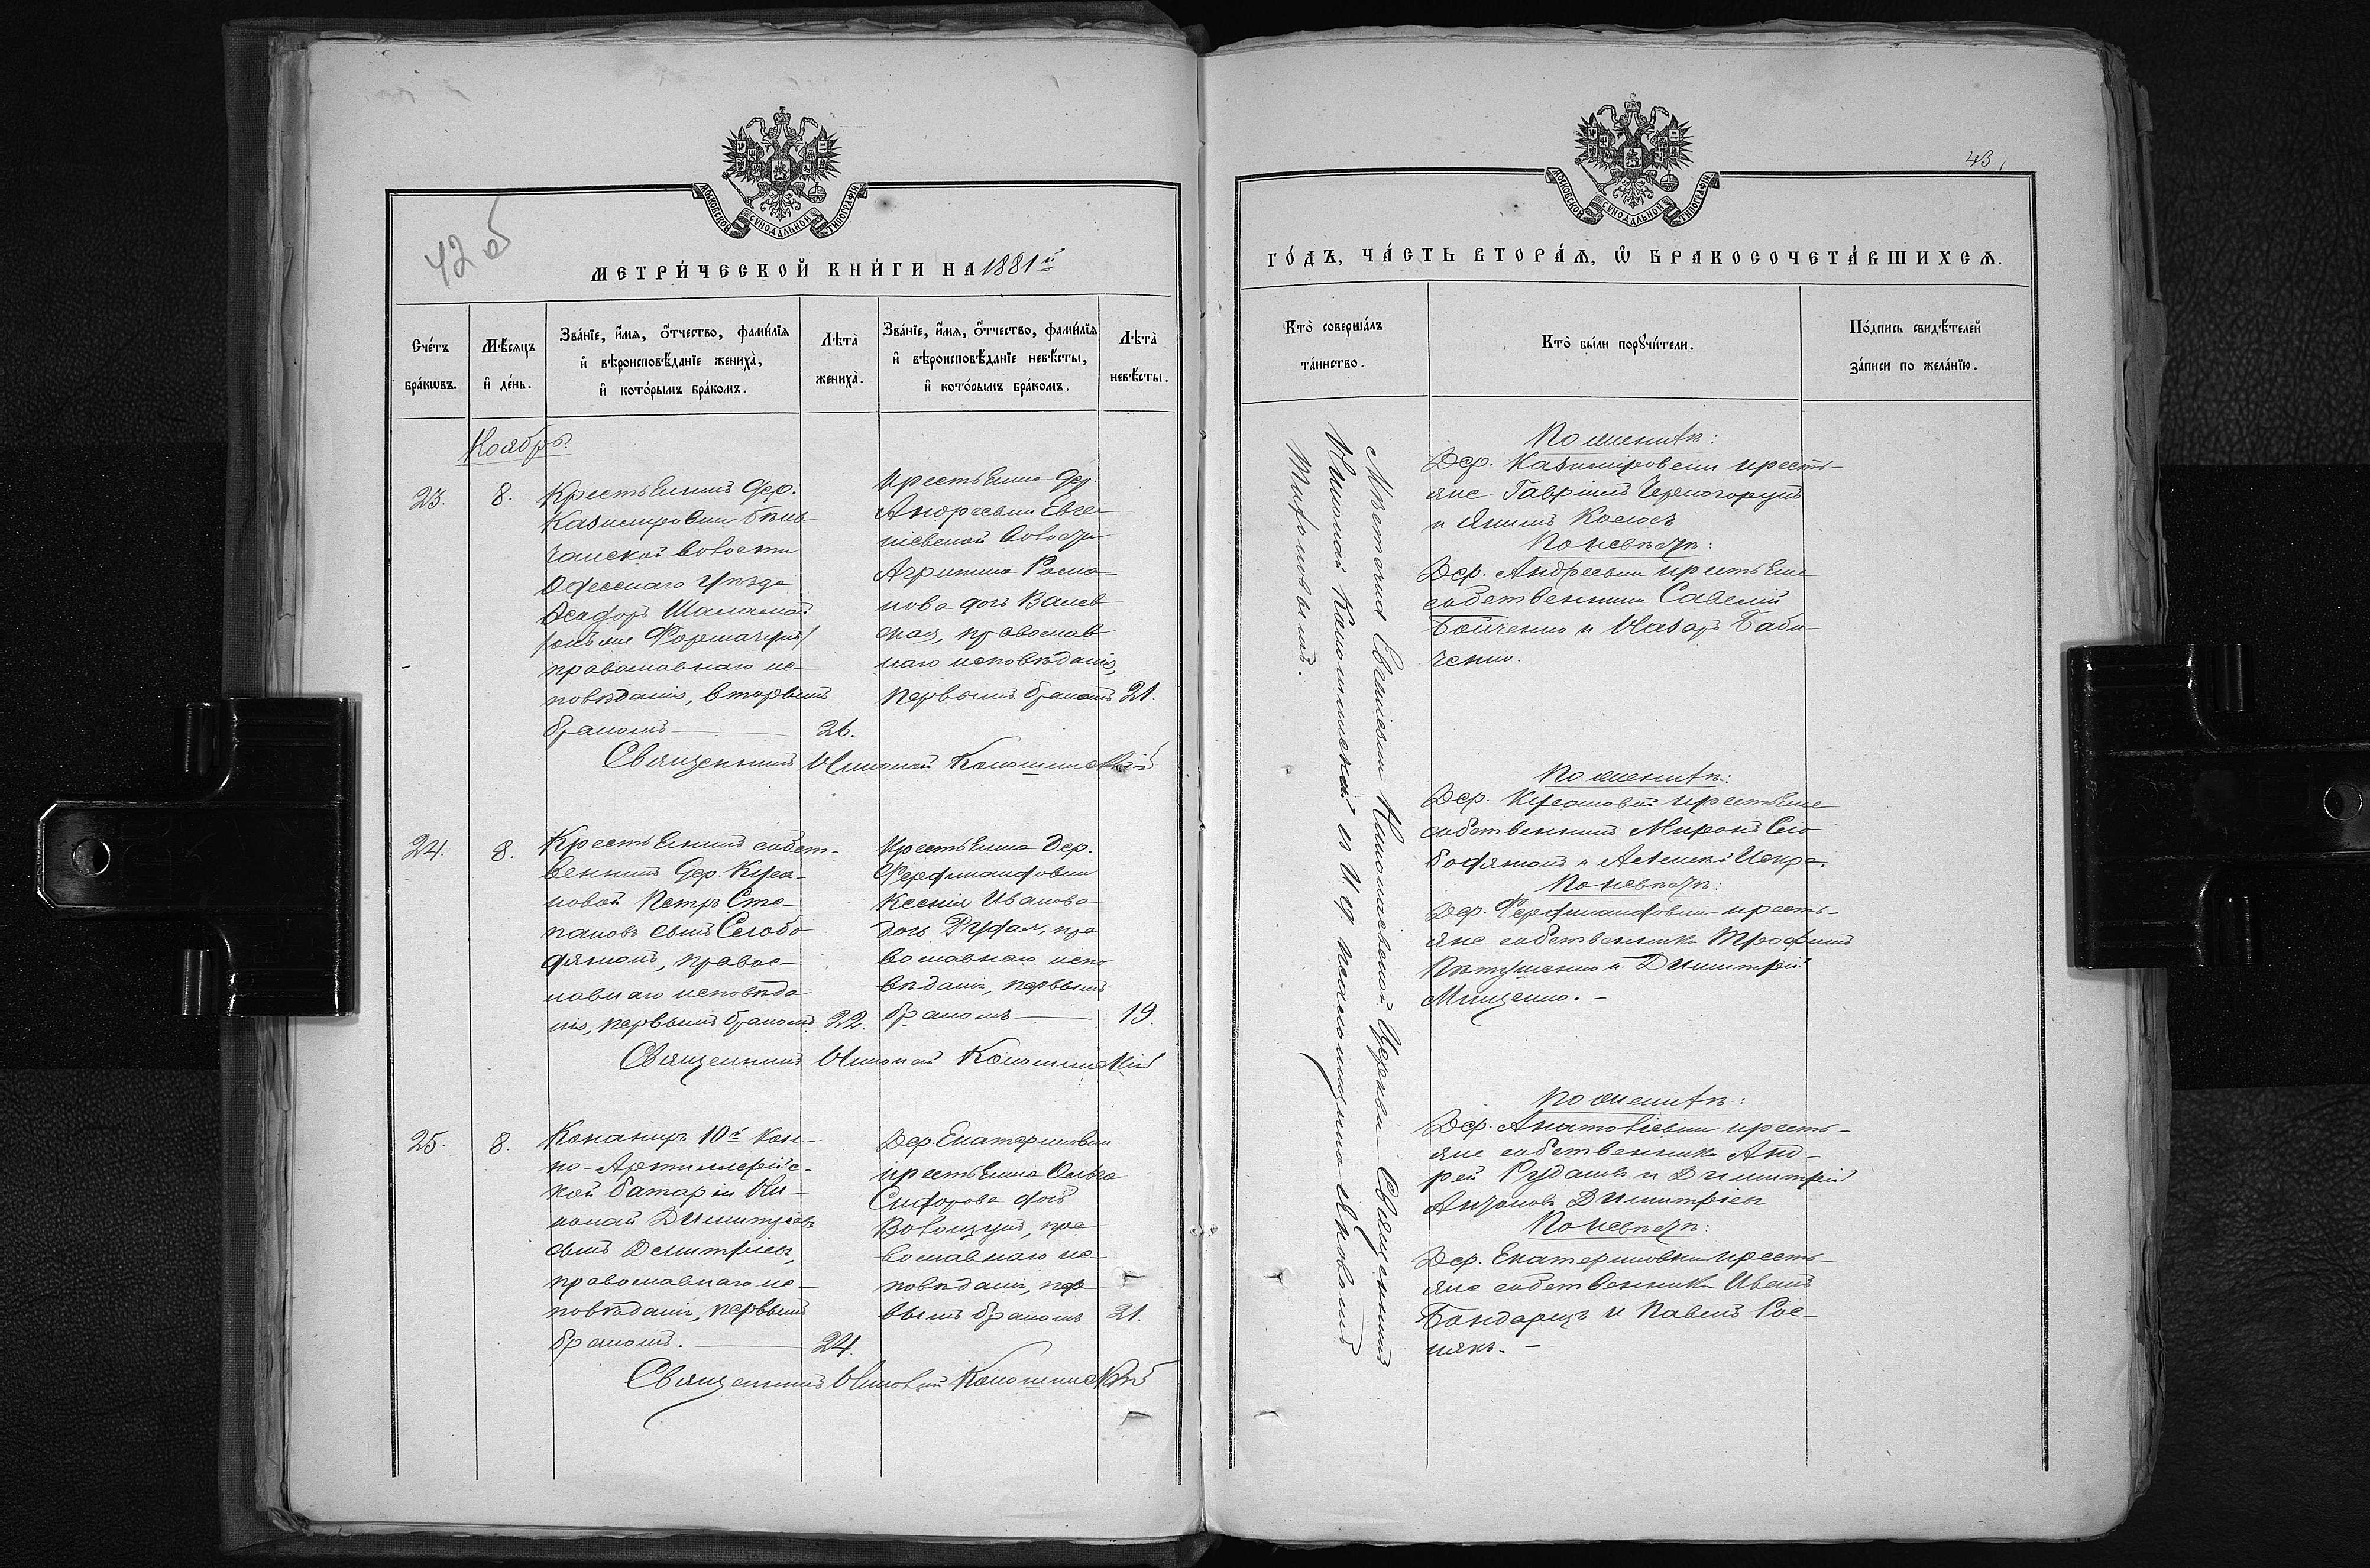 42 об
МОСКОВСКОЙ СУНОДАЛЬНОЙ ТИПОГРАФІИ
МЕТРИ́ЧЕСКОЙ КНИ́ГИ НА 1881й
Сче́тъ бра́кѡвъ.
Мѣ́сяцъ и҆ де́нь.
Зва́нїе, и҆́мя, ѻ҆́тчество, фами́лїя
и҆ вѣроисповѣ́данїе жениха̀,
и҆ кото́рымъ бра́комъ.
Лѣта̀ жениха̀.
Зва́нїе, и҆́мя, ѻ҆́тчество, фами́лїя
и҆ вѣроисповѣ́данїе невѣ́сты,
и҆ кото́рымъ бра́комъ.
Лѣта̀ невѣ́сты.
Ноябрь.
23.
8.
Крестьянинъ дер.
Казимировки
чанской волости
Одесскаго уѣзда
Ѳеодоръ
православнаго ис-
повѣданія, вторымъ
бракомъ
26.
крестьянка дер.
Андреевки Евге-
ніевской волости
Агрипина Рома-
нова дочь
ская, православ
наго исповѣданія,
первымъ бракомъ
21.
Священникъ Николай
24.
8.
Крестьянинъ собст-
венникъ дер. Куба-
новой Петръ Сте-
пановъ сынъ Слобо-
дянюкъ, правос-
лавнаго исповѣда
нія, первымъ бракомъ
22.
крестьянка дер.
Фердинандовки
Ксенія Иванова
дочь Рудая, пра
вославнаго испо
вѣданія, первымъ
бракомъ
19.
Священникъ Николай
25.
8.
Канониръ 10й кон-
но-Артиллерійс-
кой батареи Ни-
колай Димитріевъ
сынъ Димитріевъ,
православнаго ис-
повѣданія, первымъ
бракомъ.
24.
Дер. Екатериновки
крестьянка Ольга
Сидорова дочь
пра
вославнаго ис-
повѣданія, пер
вымъ бракомъ
21.
Священникъ Николай
43
МОСКОВСКОЙ СУНОДАЛЬНОЙ ТИПОГРАФІИ
ГО́ДЪ, ЧА́СТЬ ВТОРА́Ѧ, Ѽ БРАКОСОЧЕТА́ВШИХСѦ.
Кто̀ соверша́лъ та́инство.
Кто̀ бы́ли порꙋчи́тели.
По́дпись свидѣ́телей за́писи по жела́нїю.
Мѣстечка Николаевской Церкви Священникъ
Николай и И. д. псаломщика Яковъ
По женихѣ:
Дер. Казимировки кресть-
яне Гавріилъ Черногорцъ
и Якимъ Колосъ
По невѣстѣ:
Дер. Андреевки крестьяне
собственники Савелій
Бойченко и Назаръ Баби-
ченко.
По женихѣ:
Дер. Кубановой крестьяне
собственники Миронъ Сло
бодянюкъ и Алексѣй Искра.
По невѣстѣ:
Дер. Фердинандовки кресть-
яне собственники Трофимъ
Пѣтушенко и Димитрій
Мищенко.
По женихѣ:
Дер. Анатоліевки кресть-
яне собственники Анд-
рей Рудаковъ и Димитрій
Антоновъ Димитріевъ
По невѣстѣ:
Дер. Екатериновки кресть-
яне собственники Иванъ
Бондарецъ и Павелъ Рос-
някъ.